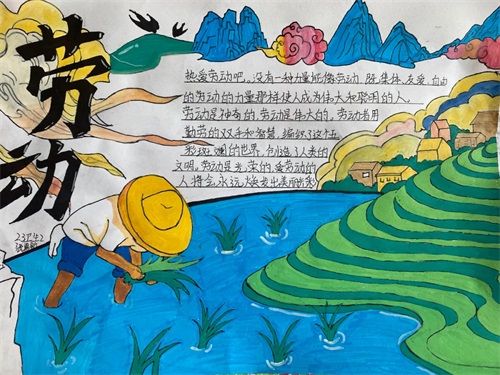 劳动
热爱劳动吧。没有一种力量能像劳动,既集体、友爱、自由
的劳动的力量那样使人成为伟大和聪明的人。
劳动是神奇的,劳动是伟大的。劳动者用
勤劳的双手和智慧,编织了这个五
彩斑斓的世界,创造了人类的
文明。劳动是光荣的,爱劳动的
人将会永远焕发出美丽光彩